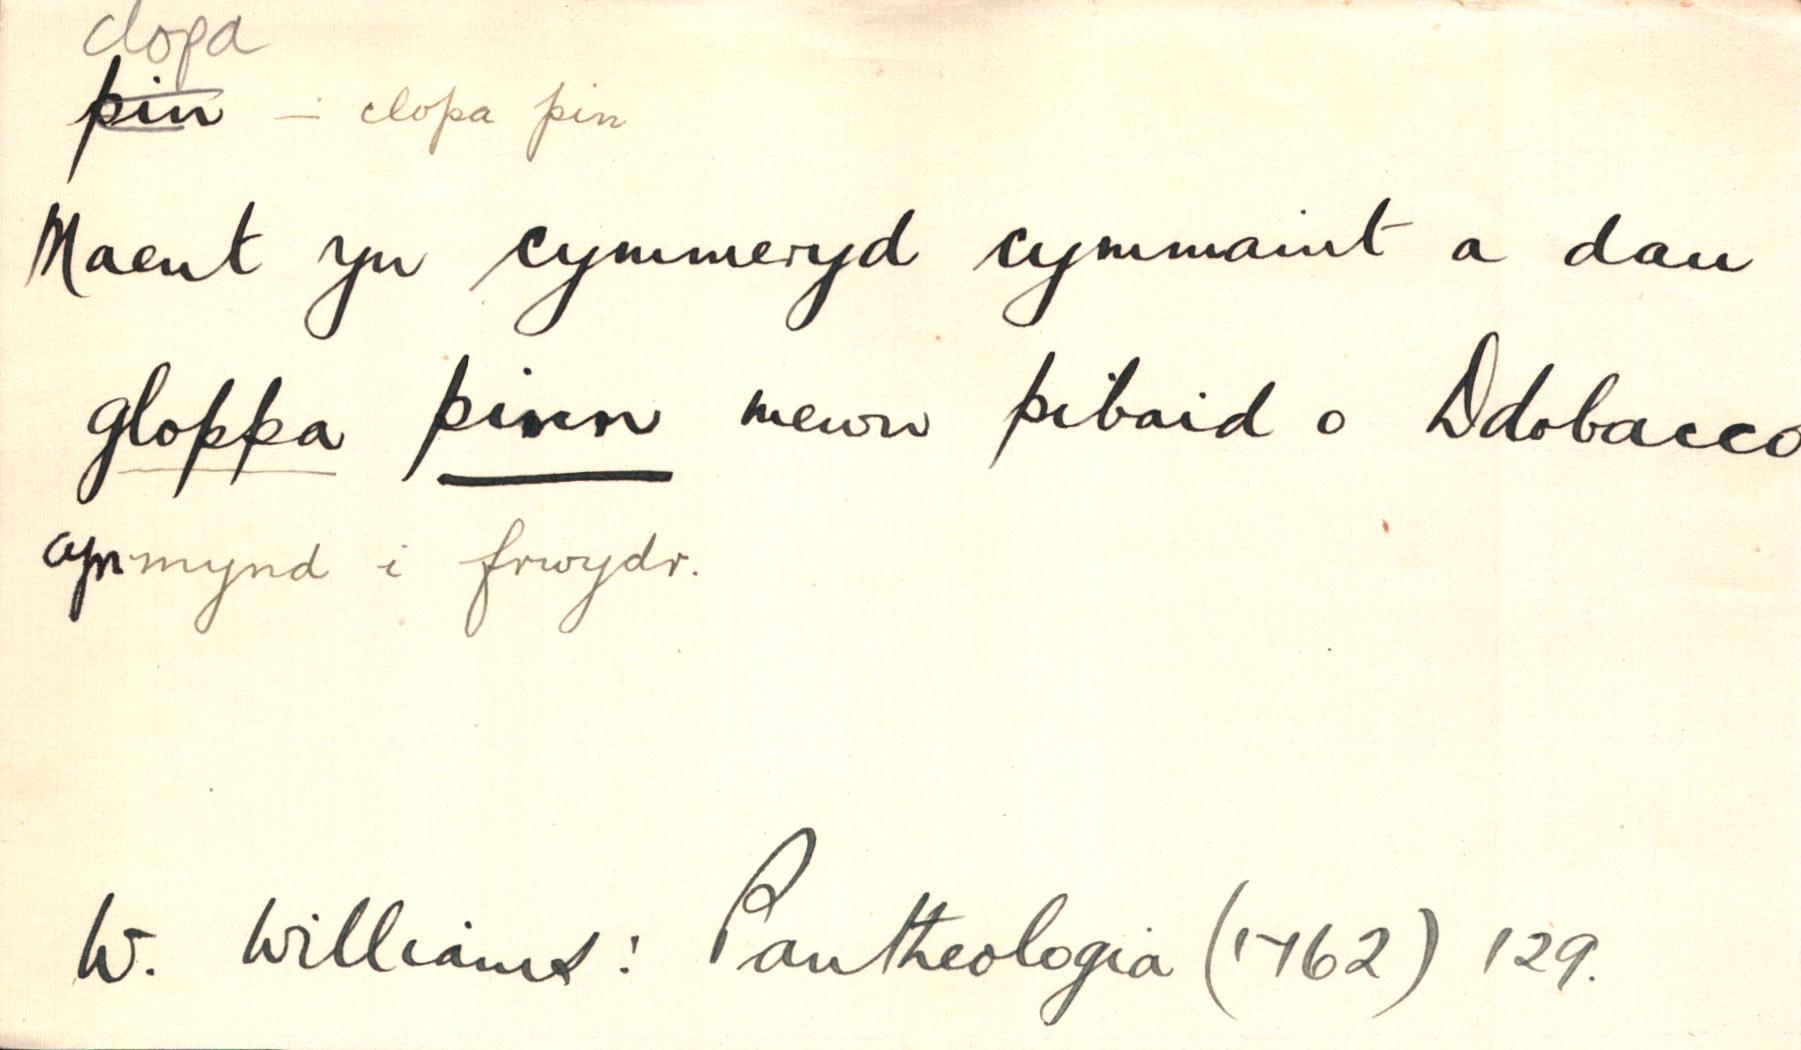 clopa
pin – : clopa pin
Maent yn cymmeryd cymmaint a dau
gloppa pinn mewn pibaid o Ddobacco
cyn mynd i frwydr.
W. Williams: Pantheologia (1762) 129.